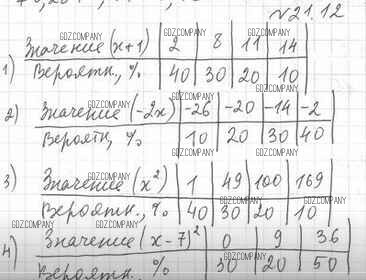 №21.12
1) Значение (x+1) | 2 | 8 | 11 | 14
Вероятн., % | 40 | 30 | 20 | 10
2) Значение (-2x) | -26 | -20 | -14 | -2
Вероятн, % | 10 | 20 | 30 | 40
3) Значение (x²) | 1 | 49 | 100 | 169
Вероятн., % | 40 | 30 | 20 | 10
4) Значение (x-7)² | 0 | 9 | 36
Вероятн., % | 30 | 20 | 50
GDZ.COMPANY